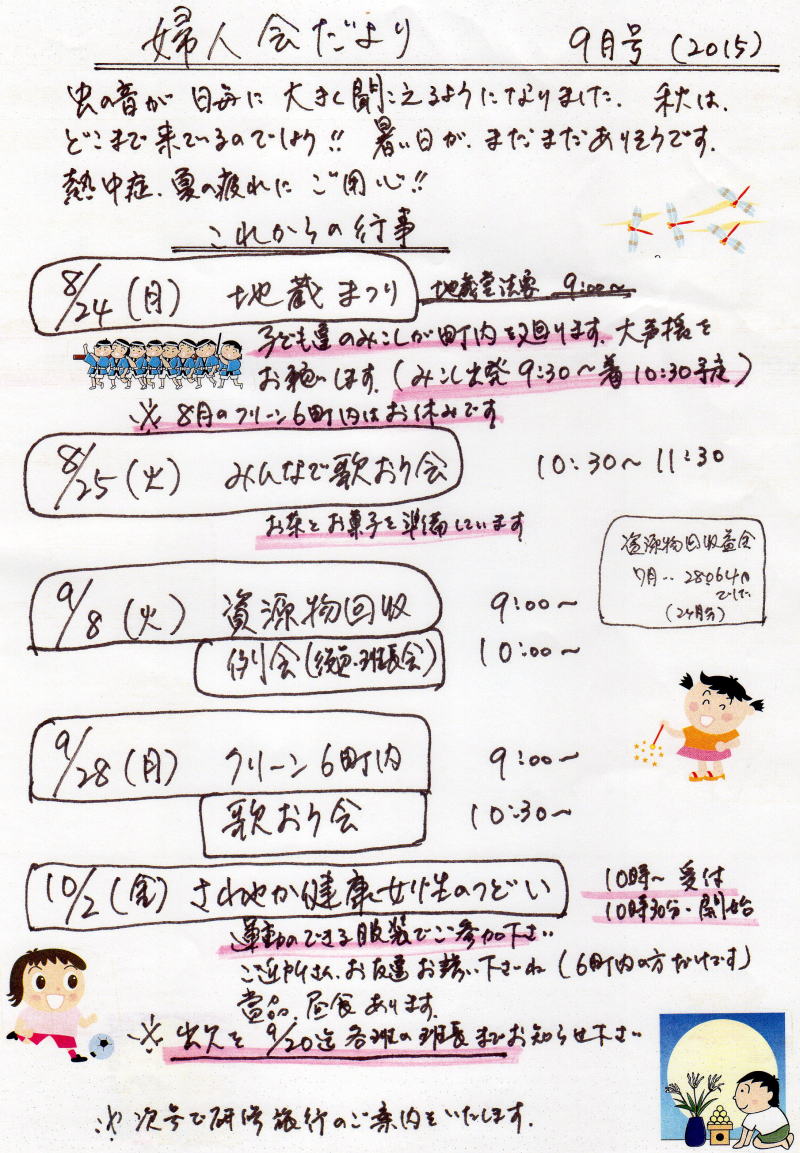 婦人会だより 9月号(2015)
虫の音が日毎に大きく聞こえるようになりました。秋は、
どこまで来ているのでしょう!! 暑い日が、まだまだありそうです。
熱中症、夏の疲れにご用心!!
これからの行事
8/24(月) 地蔵まつり 地蔵堂法要 9:00~
子ども達のみこしが町内を廻ります。大声援を
お願いします。(みこし出発 9:30~着10:30予定)
※ 8月のクリーン6町内はお休みです
8/25(火) みんなで歌おう会 10:30~11:30
お茶とお菓子を準備しています
資源物回収益金
7月‥28064円
でした
(2ヶ月分)
9/8(火) 資源物回収 9:00~
例会(役員・班長会) 10:00~
9/28(月) クリーン6町内 9:00~
歌おう会 10:30~
10/2(金) さわやか健康女性のつどい 10時~受付
10時30分~開始
運動のできる服装でご参加下さい
ご近所さん、お友達お誘い下さいね(6町内の方だけです)
賞品、昼食あります。
※ 出欠を 9/20迄各班の班長までお知らせ下さい
※ 次号で研修旅行のご案内をいたします。